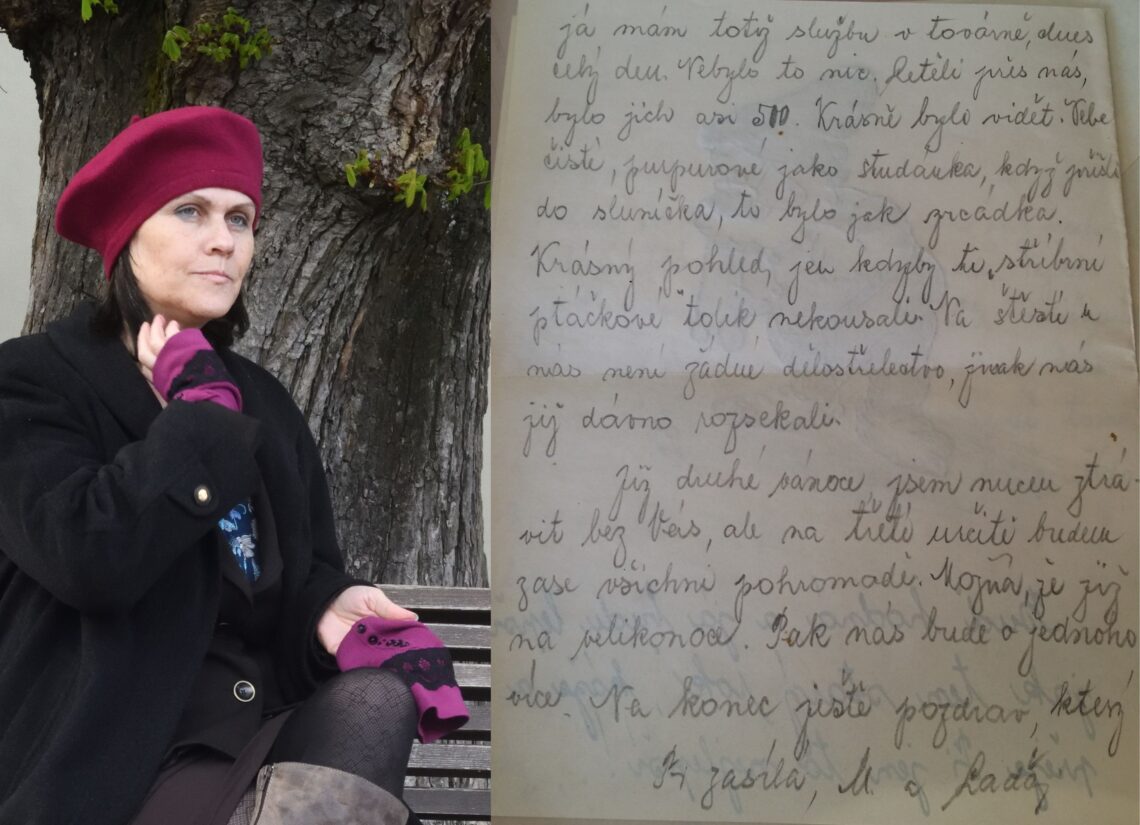 já mám totiž službu v továrně, dnes
celý den. Nebylo to nic. Letěli přes nás,
bylo jich asi 500. Krásně bylo vidět. Nebe
čisté, purpurové jako studánka, když přišli
do sluníčka, to bylo jak zrcádka.
Krásný pohled, jen kdyby ti „stříbrní
ptáčkové" tolik nekousali. Na štěstí u
nás není žádné dělostřelectvo, jinak nás
již dávno rozsekali.
Již druhé vánoce jsem nucen ztrá-
vit bez Vás, ale na třetí určitě budem
zase všichni pohromadě. Možná, že již
na velikonoce. Pak nás bude o jednoho
více. Na konec ještě pozdrav, který
Vy zasílá, M. a Lada